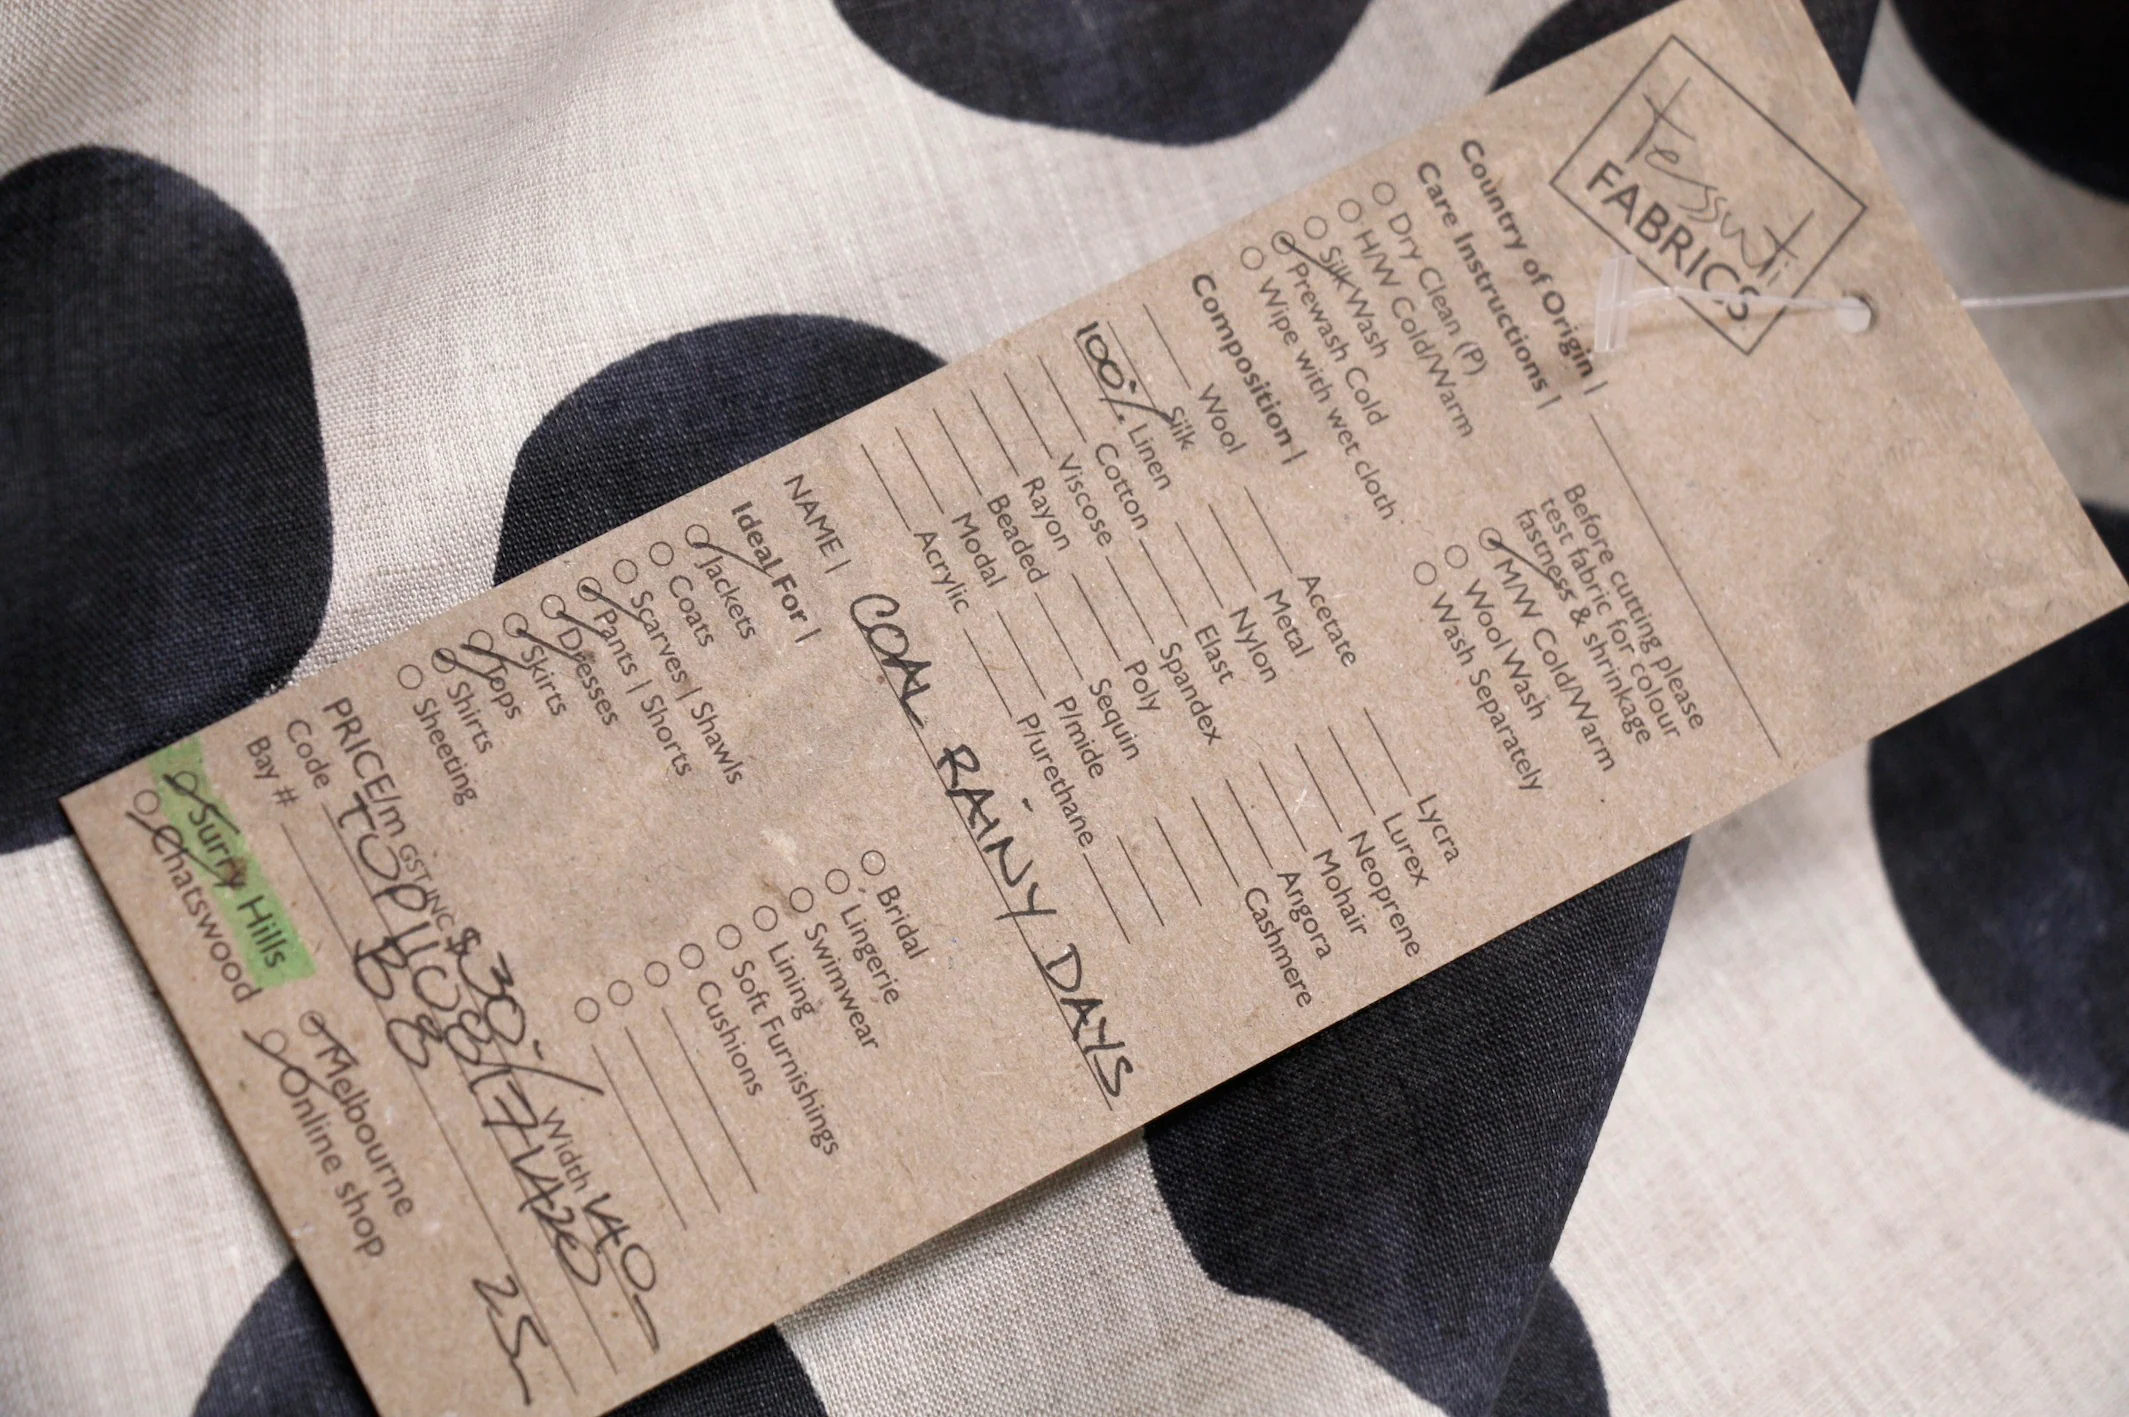 tessuti
FABRICS
Country of Origin |
Care Instructions |
Before cutting please
test fabric for colour
fastness & shrinkage
Dry Clean (P)
H/W Cold/Warm
Silk Wash
Prewash Cold
Wipe with wet cloth
M/W Cold/Warm
Wool Wash
Wash Separately
Composition |
Wool
Silk
100% Linen
Cotton
Viscose
Rayon
Beaded
Modal
Acrylic
Acetate
Metal
Nylon
Elast
Spandex
Poly
Sequin
P/mide
P/urethane
Lycra
Lurex
Neoprene
Mohair
Angora
Cashmere
NAME | COAL RAINY DAYS
Ideal For |
Jackets
Coats
Scarves | Shawls
Pants | Shorts
Dresses
Skirts
Tops
Shirts
Sheeting
Bridal
Lingerie
Swimwear
Lining
Soft Furnishings
Cushions
PRICE/m GST INC $30/ Width 140
Code
Bay # B8 25
Surry Hills
Chatswood
Melbourne
Online shop